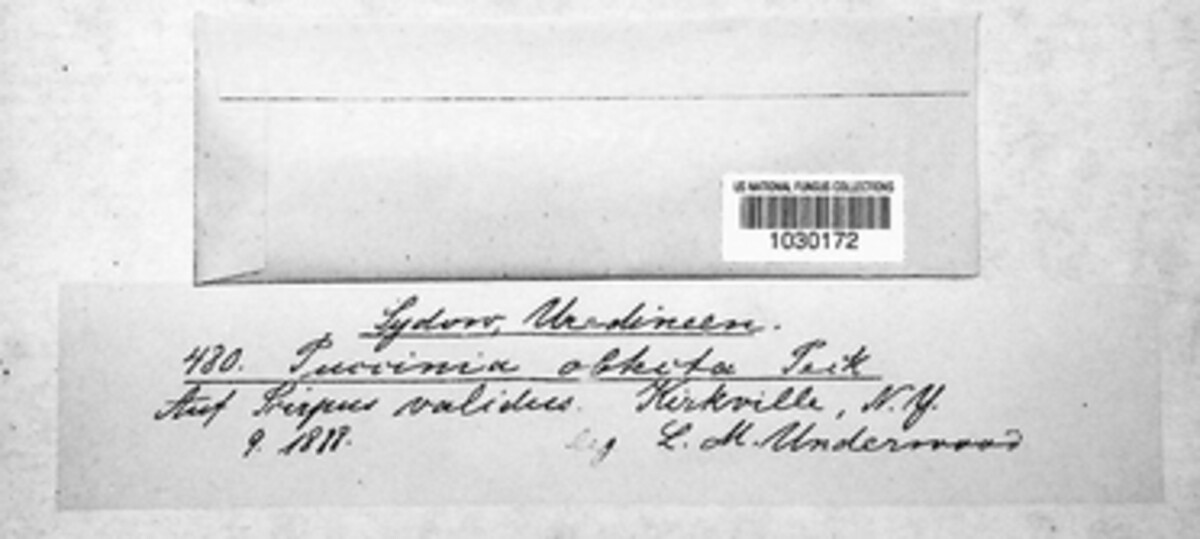 US NATIONAL FUNGUS COLLECTIONS
1030172
Sydow, Uredineen.
480. Puccinia obtecta Peck
Auf Scirpus validus. Kirkville, N.Y.
leg L. M. Underwood